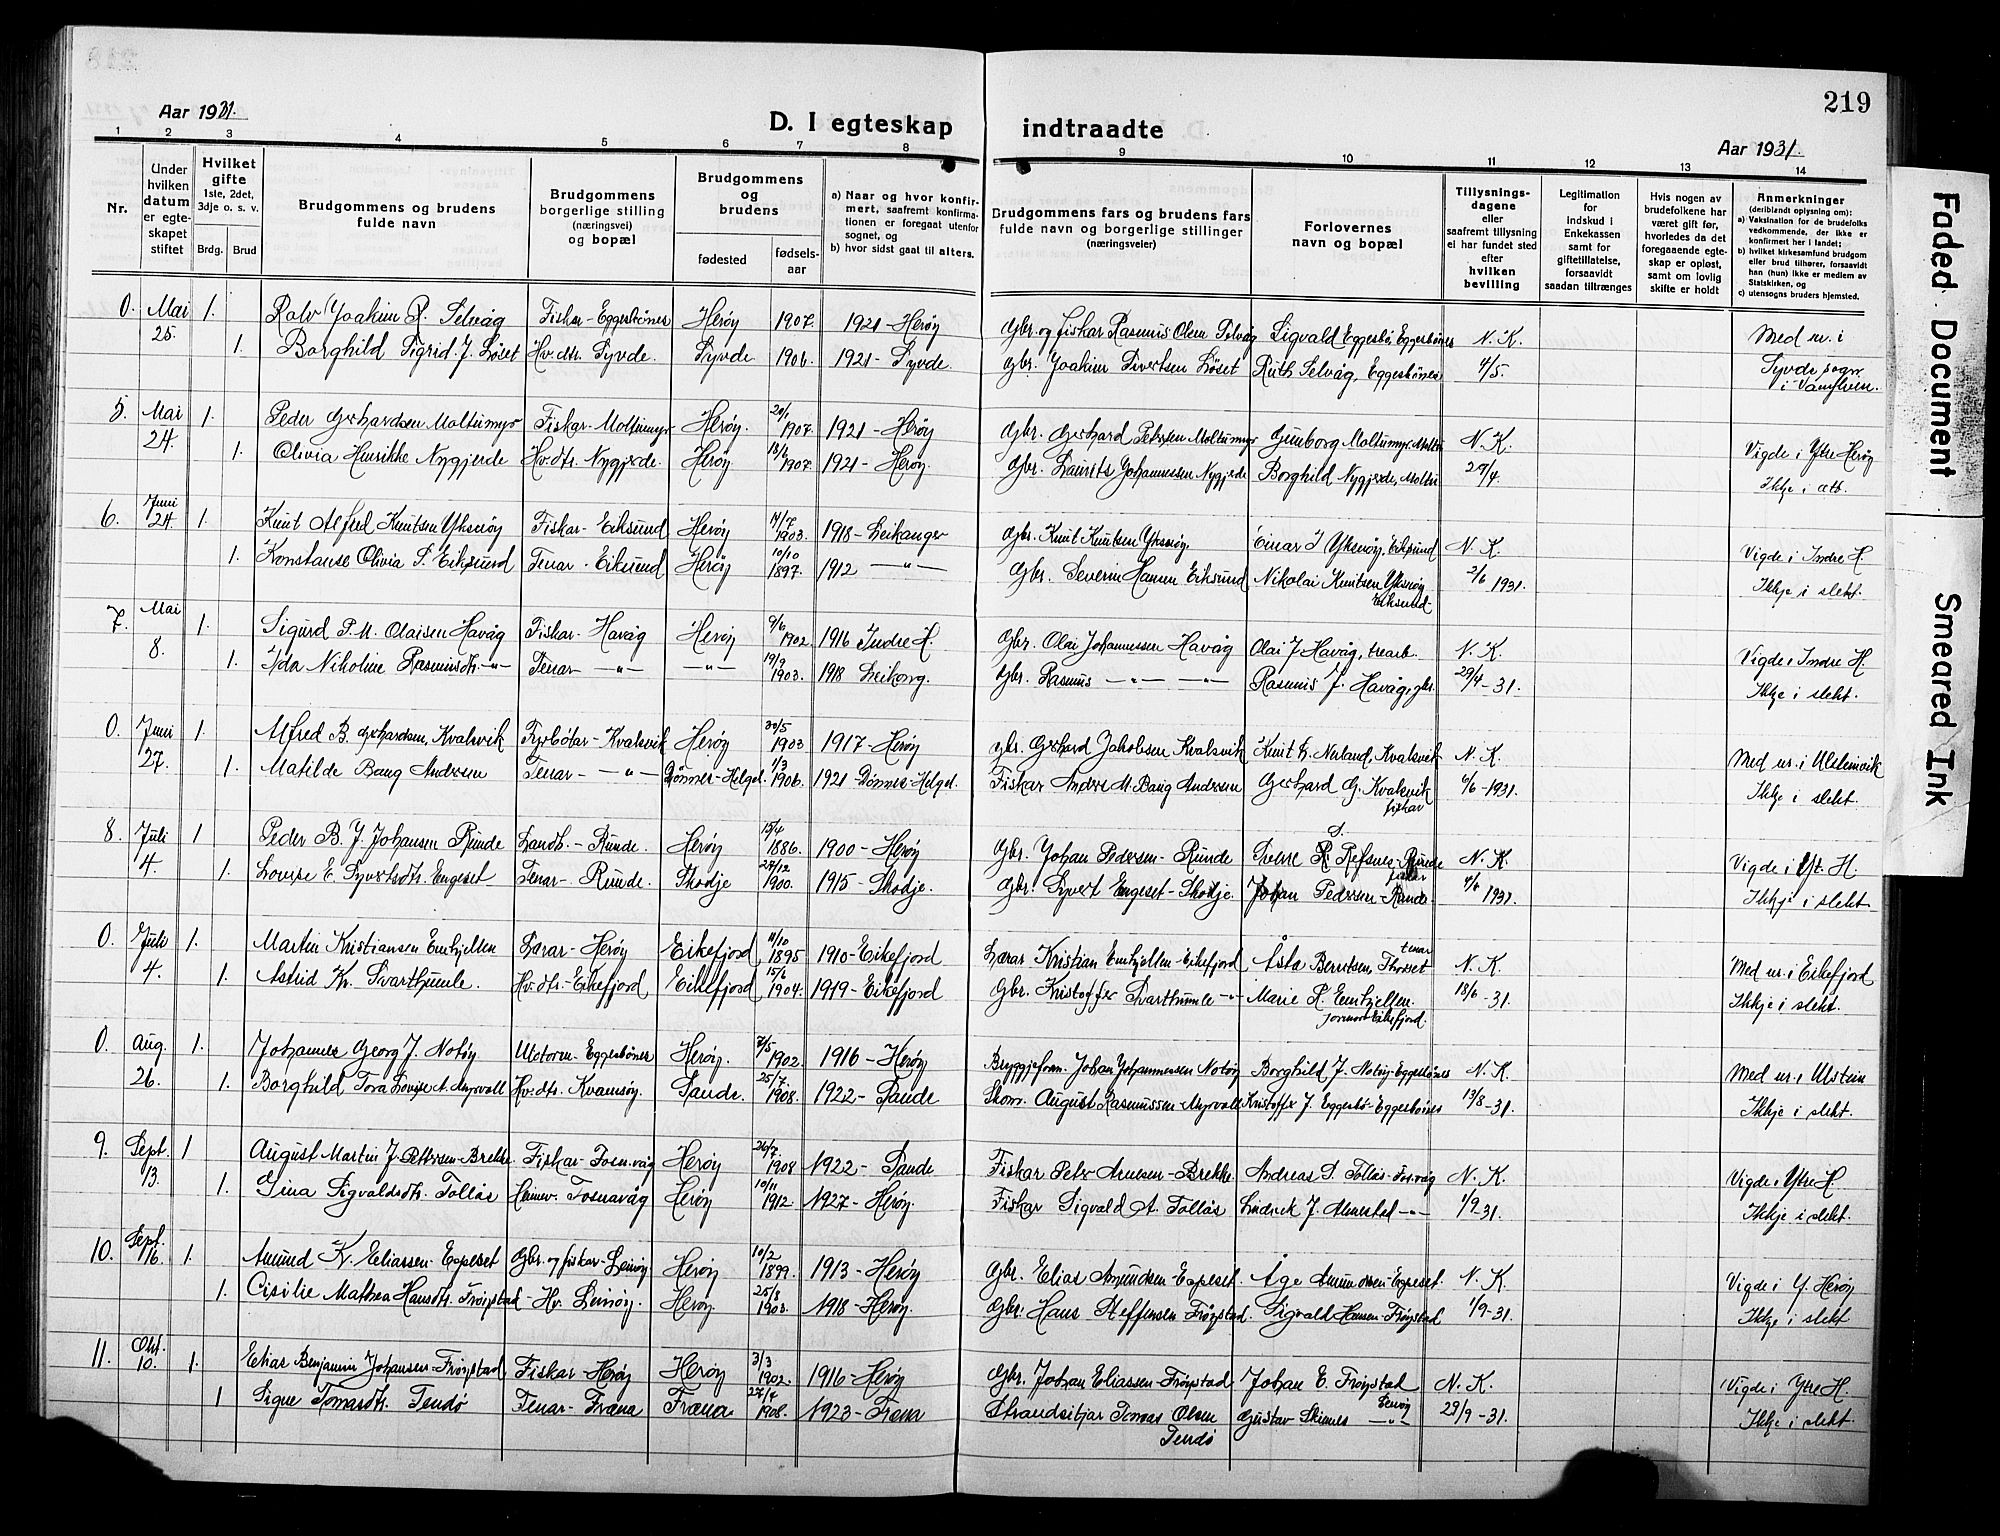 219
Aar 1931.
D. I egteskap indtraadte
Aar 1931.
1 2 3 4 5 6 7 8 9 10 11 12 13 14
Nr.
Under hvilken datum er egteskapet stiftet
Hvilket gifte 1ste, 2det, 3dje o. s. v.
Brdg. Brud
Brudgommens og brudens fulde navn
Brudgommens borgerlige stilling (næringsvei) og bopæl
Brudgommens og brudens
fødested
fødselsaar
a) Naar og hvor konfirmert, saafremt konfirmationen er foregaat utenfor sognet, og
b) hvor sidst gaat til alters.
Brudgommens fars og brudens fars fulde navn og borgerlige stillinger (næringsveier)
Forlovernes navn og bopæl
Tillysningsdagene eller saafremt tillysning ei har fundet sted efter hvilken bevilling
Legitimation for indskud i Enkekassen samt for giftetillatelse, forsaavidt saadan tiltrænges
Hvis nogen av brudefolkene har været gift før, hvorledes da det foregaaende egteskap er opløst, samt om lovlig skifte er holdt
Anmerkninger (deriblandt oplysning om):
a) Vaksination for de brudefolks vedkommende, der ikke er konfirmert her i landet;
b) hvilket kirkesamfund brudgom eller brud tilhører, forsaavidt han (hun) ikke er medlem av Statskirken, og
c) utensogns bruders hjemsted.
0. Mai 1. Ralv Joakim R. Selvåg Fiskar-Eggesbönes Heröy 1907. 1921-Heröy Gbr. og fiskar Rasmus Olsen Selvåg Sigvald Eggesbö, Eggesbönes N. K. Med nr. i
25. 1. Borghild Sigrid J. Löset Hv.dtr. Syvde. Syvde 1906. 1921-Syvde. Gbr. Joakim Sivertsen Löset Ruth Selvåg, Eggesbönes 4/5. Syvde sogn
i Vanylven.
5. Mai 1. Peder Gerhardsen Moltumyr Fiskar-Moltumyr Heröy. 20/1 1907. 1921-Heröy Gbr. Gerhard Petersen Moltumyr Gunborg Moltumyr, Moltu N. K. Vigde i Ytre Heröy
24. 1. Olivia Henrikke Nygjerde Hv.dtr. Nygjerde. Heröy 18/6 1907. 1921-Heröy. Gbr. Laurits Johannessen Nygjerde Borghild Nygjerde, Moltu 29/4. Ikkje i ætt.
6. Juni 24. 1. Knut Alfred Knutsen Yksnöy Fiskar-Eiksund Heröy 14/7 1903. 1918-Leikanger Gbr. Knut Knutsen Yksnöy. Einar J Yksnöy, Eiksund N. K. Vigde i Indre H.
1. Konstanse Olivia S. Eiksund Tenar-Eiksund Heröy 10/10 1897. 1912 —"— Gbr. Severin Hansen Eiksund Nikolai Knutsen Yksnöy 2/6 1931. Ikkje i slekt.
Eiksund-
7. Mai 1. Sigurd P. M. Olaisen Havåg Fiskar-Havåg Heröy 9/6 1902. 1916 Indre H. Gbr. Olai Johannessen Havåg Olai J Havåg, trearb. N. K. Vigde i Indre H.
8. 1. Ida Nikoline Rasmusdtr. —"— Tenar —"— —"— 19/9 1903. 1918 Leikang. Gbr. Rasmus —"— —"— Rasmus J. Havåg, gbr. 29/4-31. Ikkje i slekt.
0. Juni 1. Alfred B. Gerhardsen, Kvalsvik Fyrbötar-Kvalsvik Heröy 30/5 1903 1917-Heröy gbr. Gerhard Jakobsen Kvalsvik Knut K. Nerland, Kvalsvik N. K. Med nr. i Ulsteinvik
27. 1. Matilde Bang Andersen Tenar —"— Dönnes-Helgel. 1/3 1906. 1921-Dönnes-Helgel. Fiskar Anders M. Bang Andersen Gerhard G. Kvalsvik 6/6-1931. Ikkje i slekt.
fiskar
8. Juli 1 Peder B. J. Johansen Runde Landh.-Runde. Heröy 15/4 1886. 1900-Heröy Gbr. Johan Pedersen-Runde Sverre S. Refsnes-Runde N. K. Vigde i Yt. H.
4. 1. Lovise E. Syvertsdtr. Engeset Tenar-Runde. Skodje 27/12 1900. 1915-Skodje. Gbr. Syvert Engeset-Skodje. Johan Pedersen-Runde. 4/6 1931. Ikkje i slekt.
0. Juli 1. Martin Kristiansen Emhjellen Lærar-Heröy Eikefjord 11/10 1895 1910-Eikefjord Lærar Kristian Emhjellen-Eikefjord Åsta Berntsen, tenar N. K. Med nr. i Eikefjord
4. 1. Astrid Kr. Svarthumle. Hv.dtr.-Eikefjord Eikefjord 15/6 1904. 1919-Eikefjord Gbr. Kristoffer Svarthumle —"— Marie R. Emhjellen. 18/6-31. Ikkje i slekt.
0. Aug. 1. Johannes Georg J. Notöy Motorm.-Eggesbönes Heröy. 7/5 1902. 1916-Heröy Bryggjeform. Johan Johannessen Notöy Borghild J. Notöy-Eggesbönes N. K. Med nr. i Ulstein
26. 1. Borghild Tora Lovise A. Myrvoll Hv.dtr. Kvamsöy. Sande. 25/7 1908. 1922-Sande Skom. August Rasmussen-Myrvoll Kristoffer J. Eggesbö-Eggesbönes 13/8-31. Ikkje i slekt.
9. Sept. 1 August Martin J. Pettersen-Brekke. Fiskar-Fosnavåg Heröy 26/7 1908 1922-Sande Fiskar Peter Arnesen-Brekke. Andreas S. Tollås-Fosnavåg N. K. Vigde i Ytre H.
13. 1. Gina Sigvaldsdtr. Tollås Heimev. Fosnavåg Heröy 10/11 1912 1927-Heröy. Fiskar Sigvald A. Tollås Lindvik J. Almestad —"— 1/9 31. Ikkje i slekt.
10. Sept. 16. 1. Amund K. Eliassen-Eggeset Gbr. og fiskar-Leinöy Heröy 10/2 1899. 1913-Heröy Gbr. Elias Amundsen-Eggeset. Åge Amundsen-Eggeset. N. K. Vigde i Y. Heröy
1. Cisilie Mathea Hansdtr. Fröystad-Hv. Leinöy. Heröy. 25/8 1903. 1918-Heröy. Gbr. Hans Steffensen-Fröystad. Sigvald Hansen-Fröystad 1/9-31. Ikkje i slekt
11. Okt. 10. 1. Elias Benjamin Johansen-Fröystad Fiskar-Heröy Heröy 3/3 1902. 1916-Heröy Gbr. Johan Eliassen-Fröystad Johan E. Fröystad N. K. Vigde i Ytre H.
1 Signe Tomasdtr. Sendö Tenar-Fræna Fræna 27/4 1908. 1923-Fræna Strandsitjar Tomas Olsen Gustav Skinnes —"— 29/9-31. Ikkje i slekt.
Sendö
Faded Document
Smeared Ink